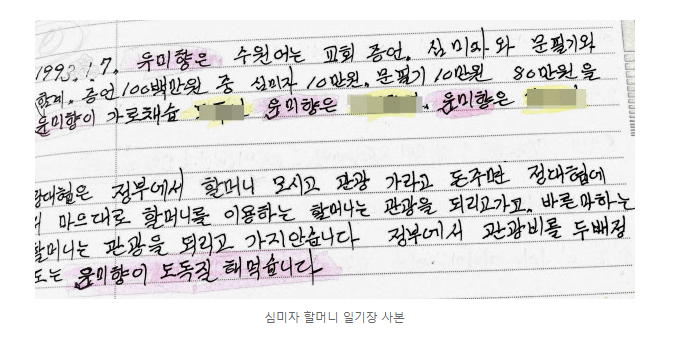 1993.1.7. 유미향은 수원어는 교회 증언. 심미자와 문필기와
함께. 증언 100백만원 중 심미자 10만원. 문필기 10만원 80만원을
윤미향이 가로채슴 윤미향은 윤미향은
정대협은 정부에서 할머니 모시고 관광 가라고 돈주면 정대협에
마으대로 할머니를 이용하는 할머니는 관광을 되리고가고. 바른마하는
할머니는 관광을 되리고 가지안습니다 정부에서 관광비를 두배정
도는 윤미향이 도독질 해먹습니다
심미자 할머니 일기장 사본